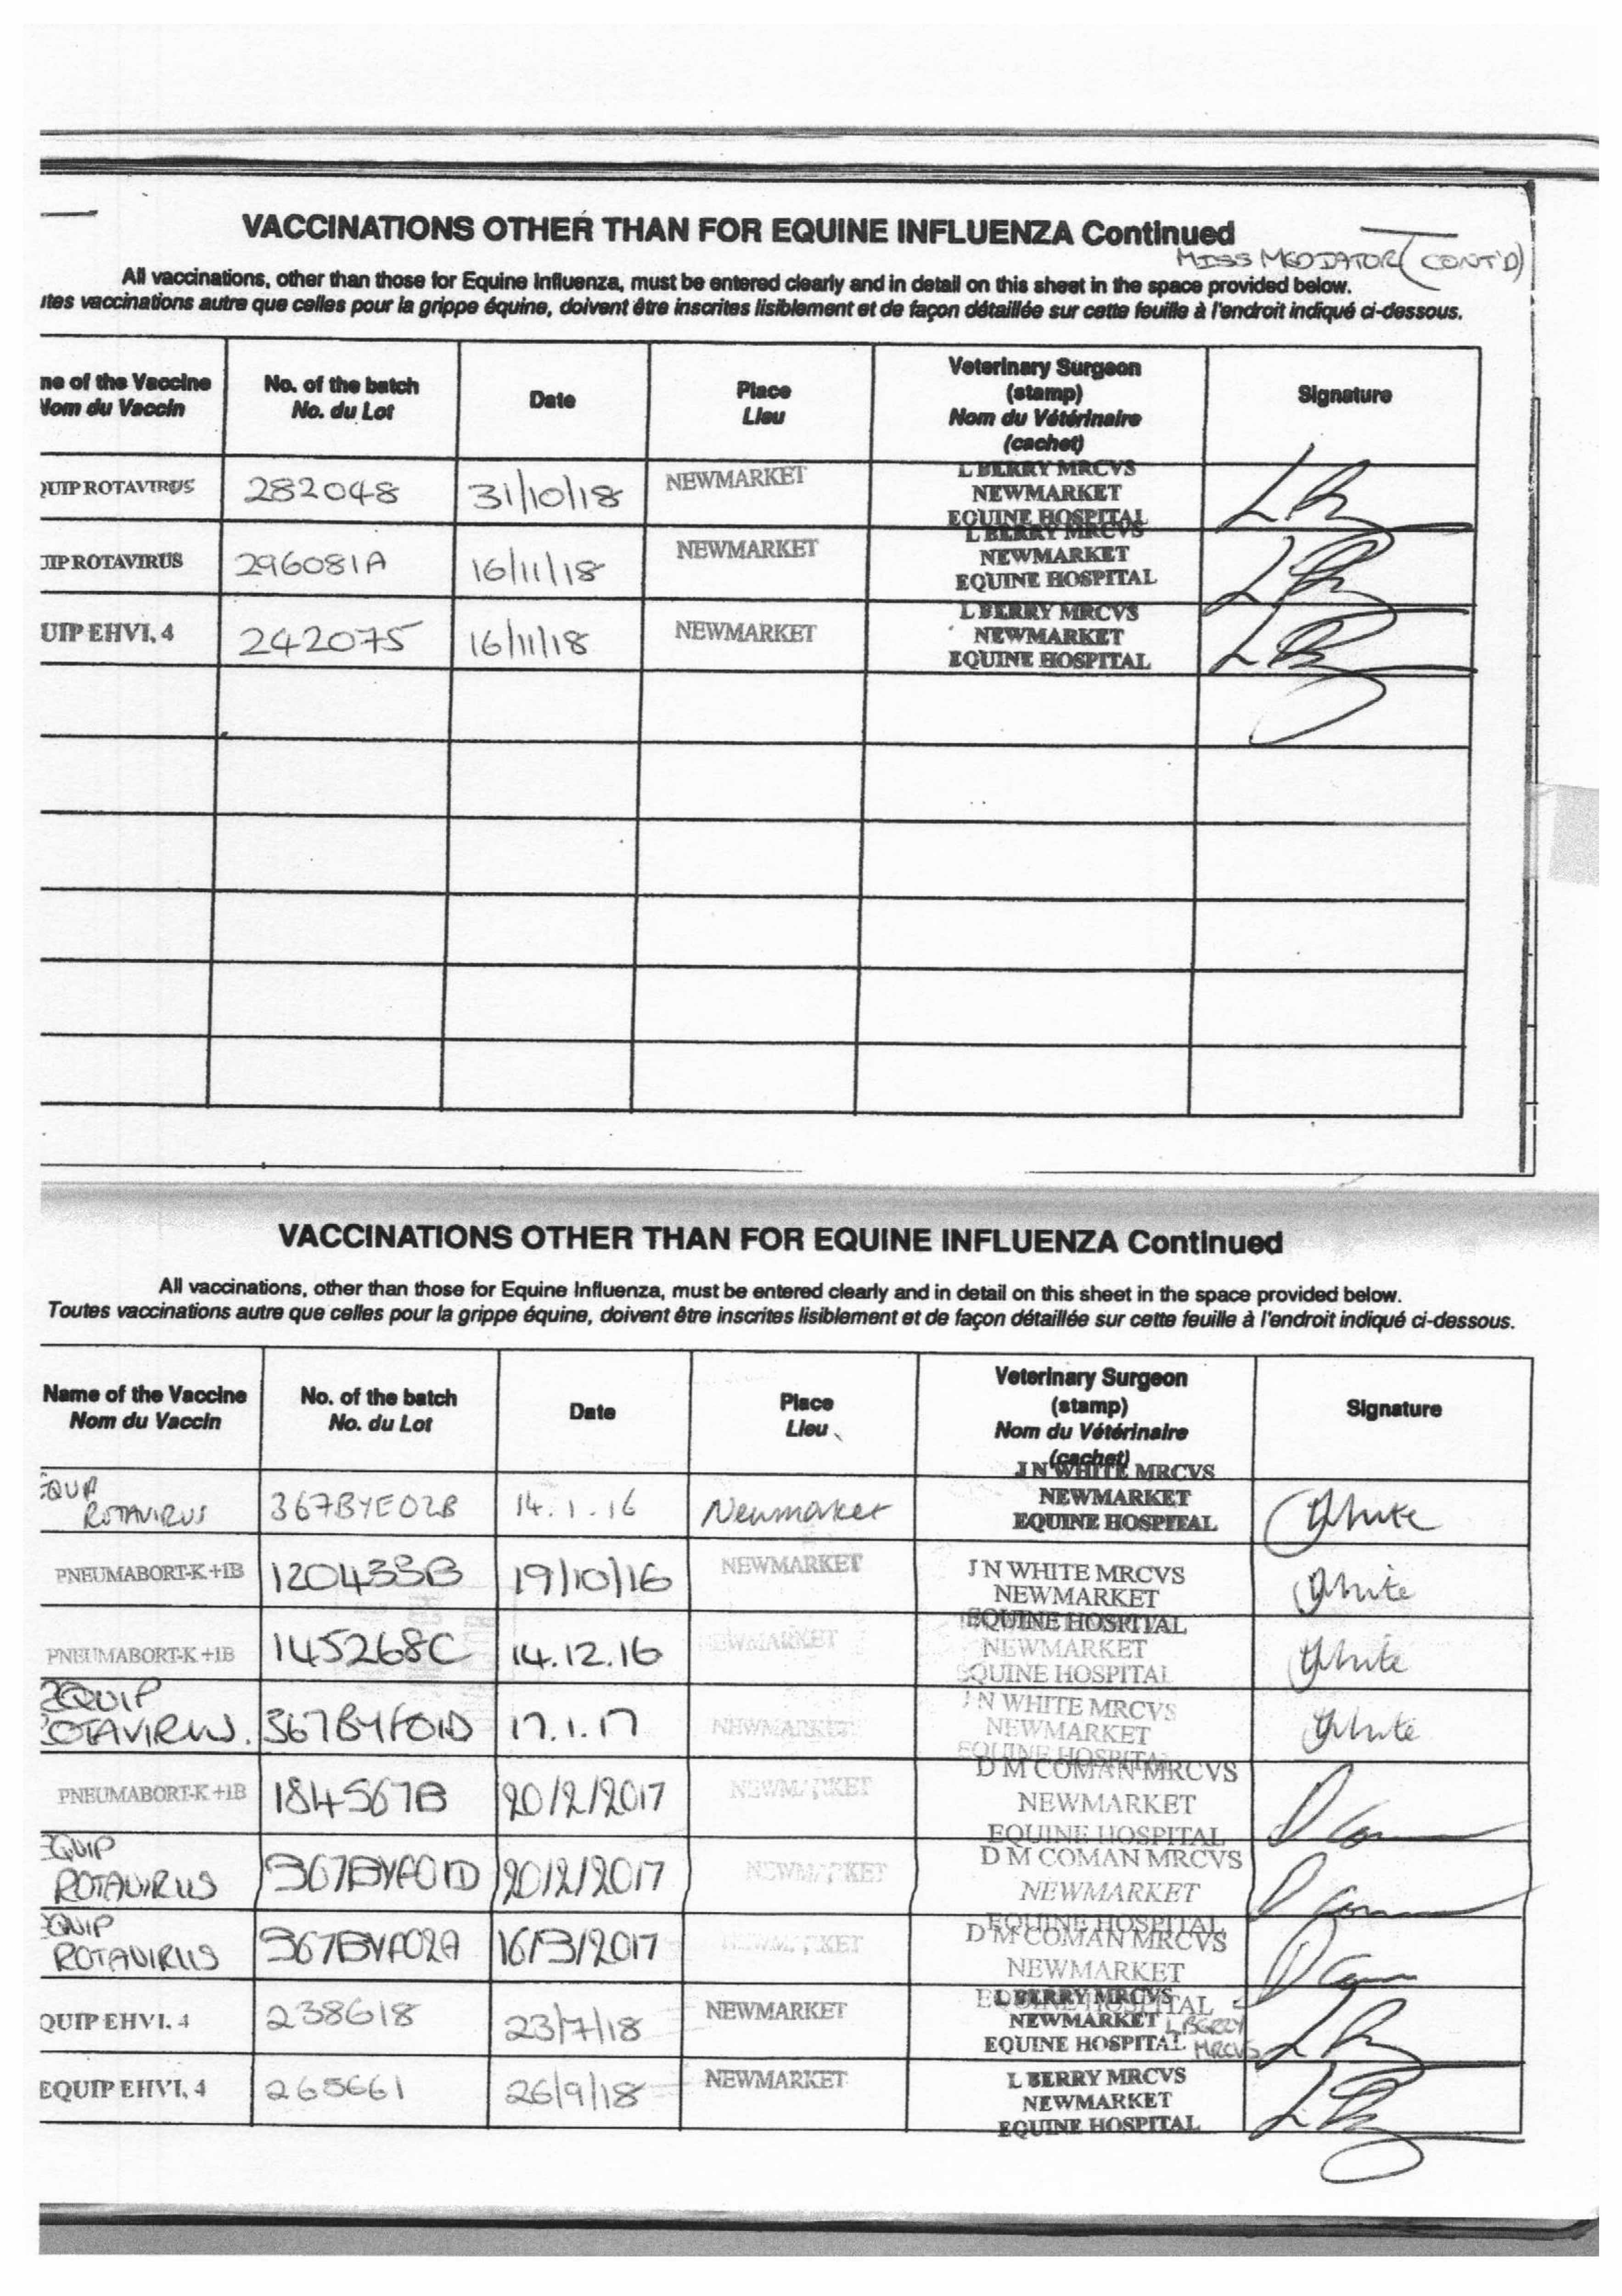 VACCINATIONS OTHER THAN FOR EQUINE INFLUENZA Continued
MISS MEDIATOR (CONT'D)
All vaccinations, other than those for Equine Influenza, must be entered clearly and in detail on this sheet in the space provided below.
ites vaccinations autre que celles pour la grippe équine, doivent être inscrites lisiblement et de façon détaillée sur cette feuille à l'endroit indiqué ci-dessous.
ne of the Vaccine No. of the batch Date Place Veterinary Surgeon Signature
Nom du Vaccin No. du Lot Lieu (stamp)
Nom du Vétérinaire
(cachet)
QUIP ROTAVIRUS 282048 31/10/18 NEWMARKET L BERRY MRCVS
NEWMARKET
EQUINE HOSPITAL
UIP ROTAVIRUS 296081A 16/11/18 NEWMARKET L BERRY MRCVS
NEWMARKET
EQUINE HOSPITAL
UIP EHV1, 4 242075 16/11/18 NEWMARKET L BERRY MRCVS
NEWMARKET
EQUINE HOSPITAL
VACCINATIONS OTHER THAN FOR EQUINE INFLUENZA Continued
All vaccinations, other than those for Equine Influenza, must be entered clearly and in detail on this sheet in the space provided below.
Toutes vaccinations autre que celles pour la grippe équine, doivent être inscrites lisiblement et de façon détaillée sur cette feuille à l'endroit indiqué ci-dessous.
Name of the Vaccine No. of the batch Date Place Veterinary Surgeon Signature
Nom du Vaccin No. du Lot Lieu (stamp)
Nom du Vétérinaire
(cachet)
EQUIP
ROTAVIRUS 367BYE02B 14.1.16 Newmarket J N WHITE MRCVS
NEWMARKET
EQUINE HOSPITAL JWhite
PNEUMABORT-K +1B 120433B 19/10/16 NEWMARKET J N WHITE MRCVS
NEWMARKET
EQUINE HOSPITAL JWhite
PNEUMABORT-K +1B 145268C 14.12.16 NEWMARKET
NEWMARKET
EQUINE HOSPITAL JWhite
EQUIP
ROTAVIRUS. 367BYF01D 17.1.17 NEWMARKET J N WHITE MRCVS
NEWMARKET
EQUINE HOSPITAL JWhite
PNEUMABORT-K +1B 184567B 20/2/2017 NEWMARKET D M COMAN MRCVS
NEWMARKET
EQUINE HOSPITAL
EQUIP
ROTAVIRUS 367BYF01D 20/2/2017 NEWMARKET D M COMAN MRCVS
NEWMARKET
EQUINE HOSPITAL
EQUIP
ROTAVIRUS 367BYF02A 16/3/2017 NEWMARKET D M COMAN MRCVS
NEWMARKET
EQUINE HOSPITAL
QUIP EHV1, 4 238618 23/7/18 NEWMARKET L BERRY MRCVS
NEWMARKET L BERRY
EQUINE HOSPITAL MRCVS
EQUIP EHV1, 4 265661 26/9/18 NEWMARKET L BERRY MRCVS
NEWMARKET
EQUINE HOSPITAL